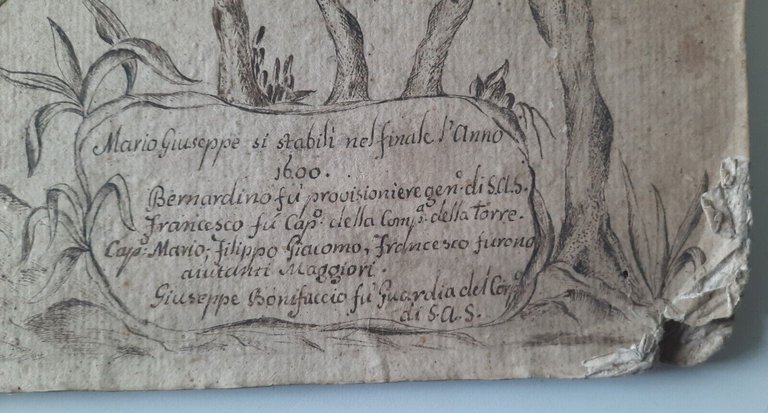 Mario Giuseppe si stabilì nel finale l'Anno
1600.
Bernardino fù provisioniere gen.º di S.A.S.
Francesco fù Cap.º della Comp.ª della Torre.
Cap.º Mario, Filippo Giacomo, Francesco furono
aiutanti Maggiori.
Giuseppe Bonifaccio fù Guardia del Corpº
di S.A.S.